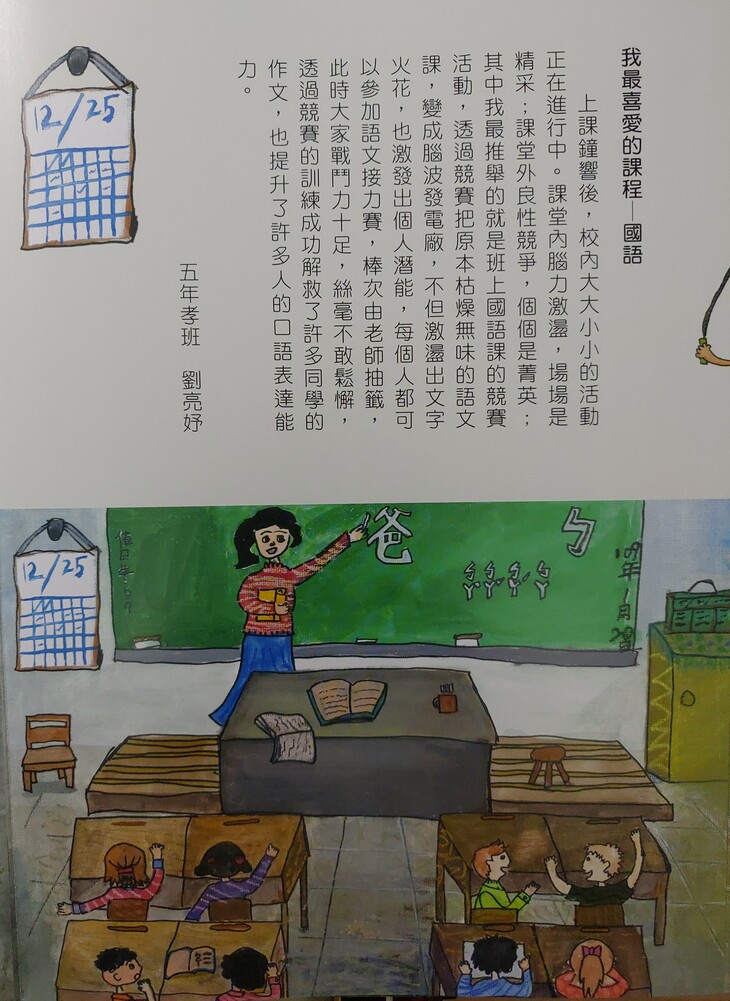 我最喜愛的課程—國語
上課鐘響後，校內大大小小的活動
正在進行中。課堂內腦力激盪，場場是
精采；課堂外良性競爭，個個是菁英；
其中我最推舉的就是班上國語課的競賽
活動，透過競賽把原本枯燥無味的語文
課，變成腦波發電廠，不但激盪出文字
火花，也激發出個人潛能，每個人都可
以參加語文接力賽，棒次由老師抽籤，
此時大家戰鬥力十足，絲毫不敢鬆懈，
透過競賽的訓練成功解救了許多同學的
作文，也提升了許多人的口語表達能
力。
五年孝班　劉亮妤
12/25
12/25
ㄅ
爸
值日生